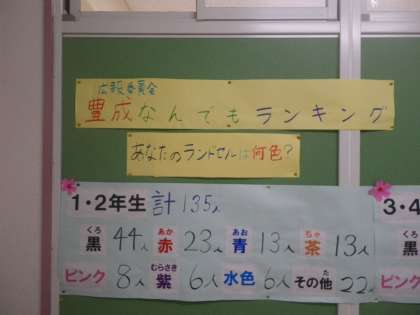 広報委員会
豊成なんでもランキング
あなたのランドセルは何色?
1・2年生 計 135人
くろ あか あお ちゃ
黒 44人 赤 23人 青 13人 茶 13人
むらさき た
ピンク 8人 紫 6人 水色 6人 その他 22人
3・4
くろ
黒
ピン